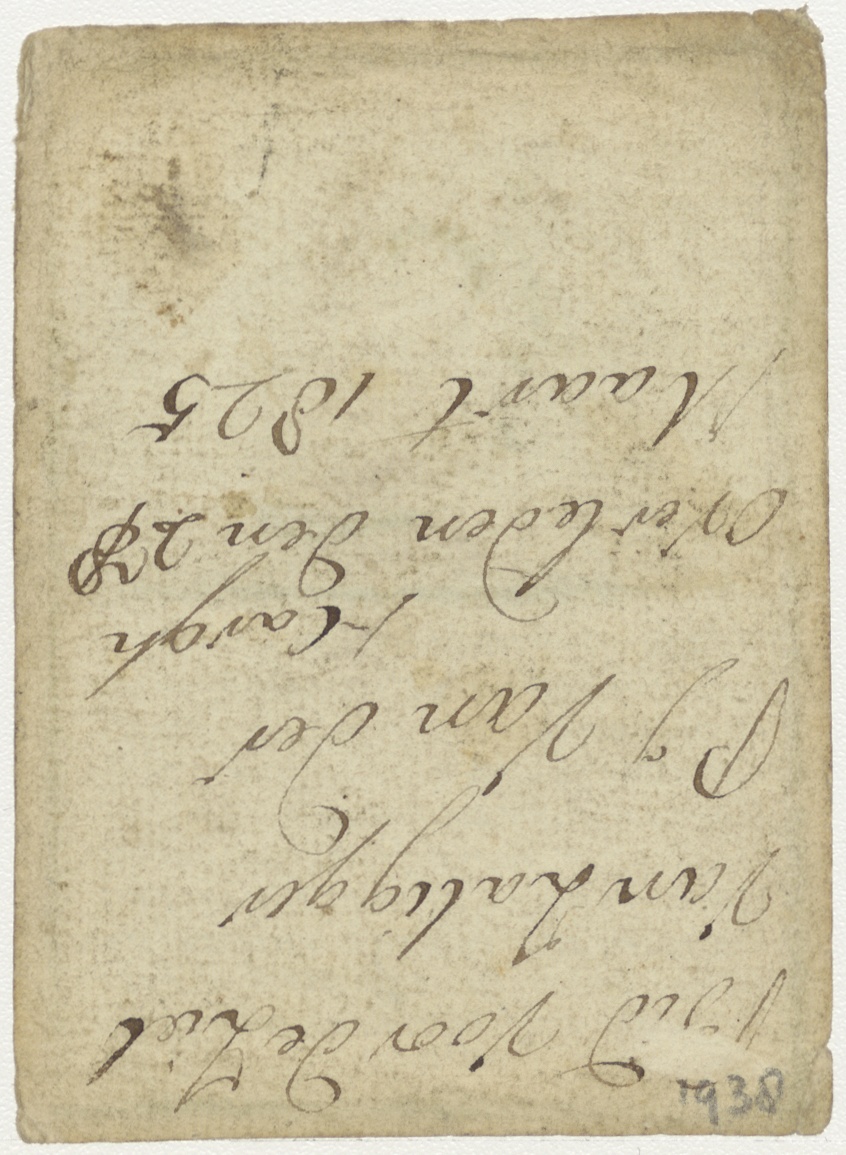 Bid Voor de Ziel
Van Zaligger
P J Van der
Hargh
Overleden den 28
Maart 1825
1938